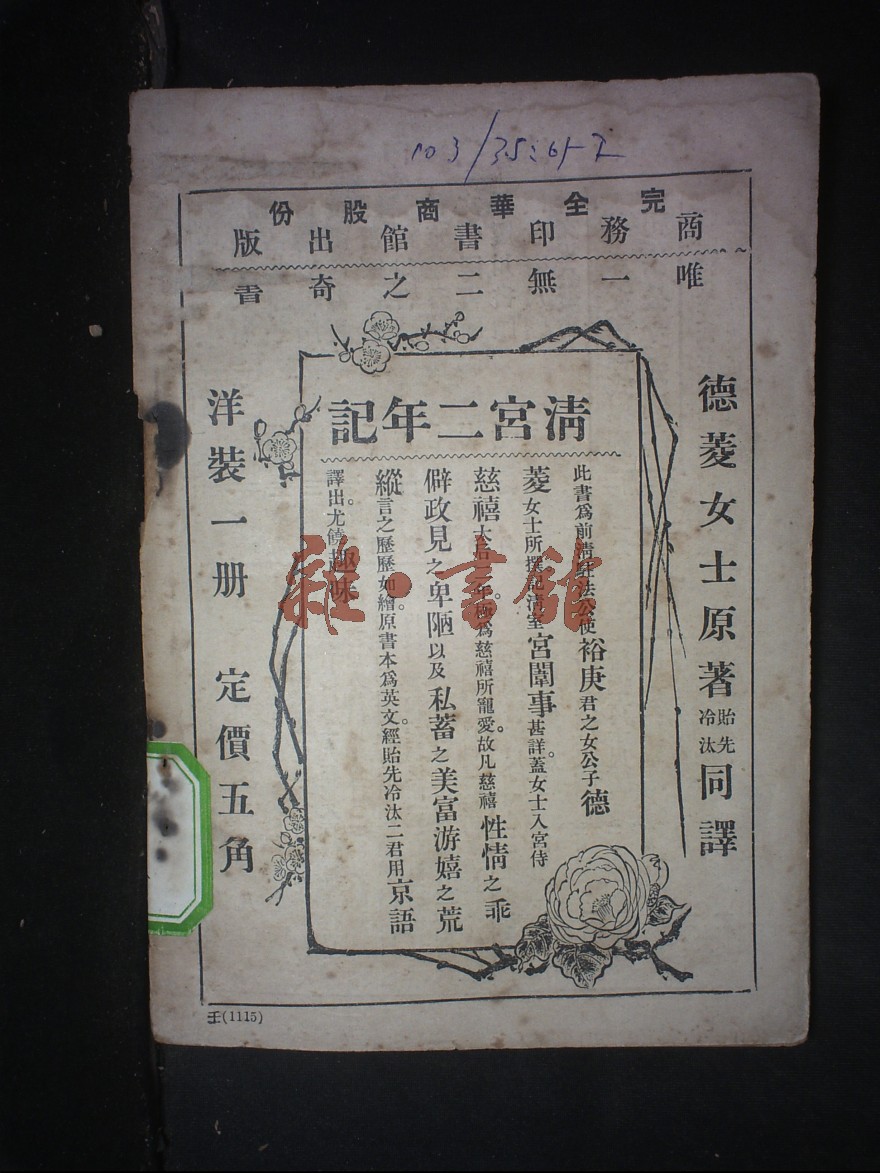 103/35:
完全華商股份
商務印書館出版
唯一無二之奇書
德菱女士原著 貽先 冷汰 同譯
清宮二年記
此書爲前清駐法公使裕庚君之女公子德
菱女士所撰記清室宮闈事甚詳。蓋女士入宮侍
慈禧太后二年。極爲慈禧所寵愛。故凡慈禧性情之乖
僻政見之卑陋以及私蓄之美富游嬉之荒
縱言之歷歷如繪。原書本爲英文。經貽先冷汰二君用京語
譯出。尤饒趣味
洋裝一册 定價五角
壬(1115)
雜·書館